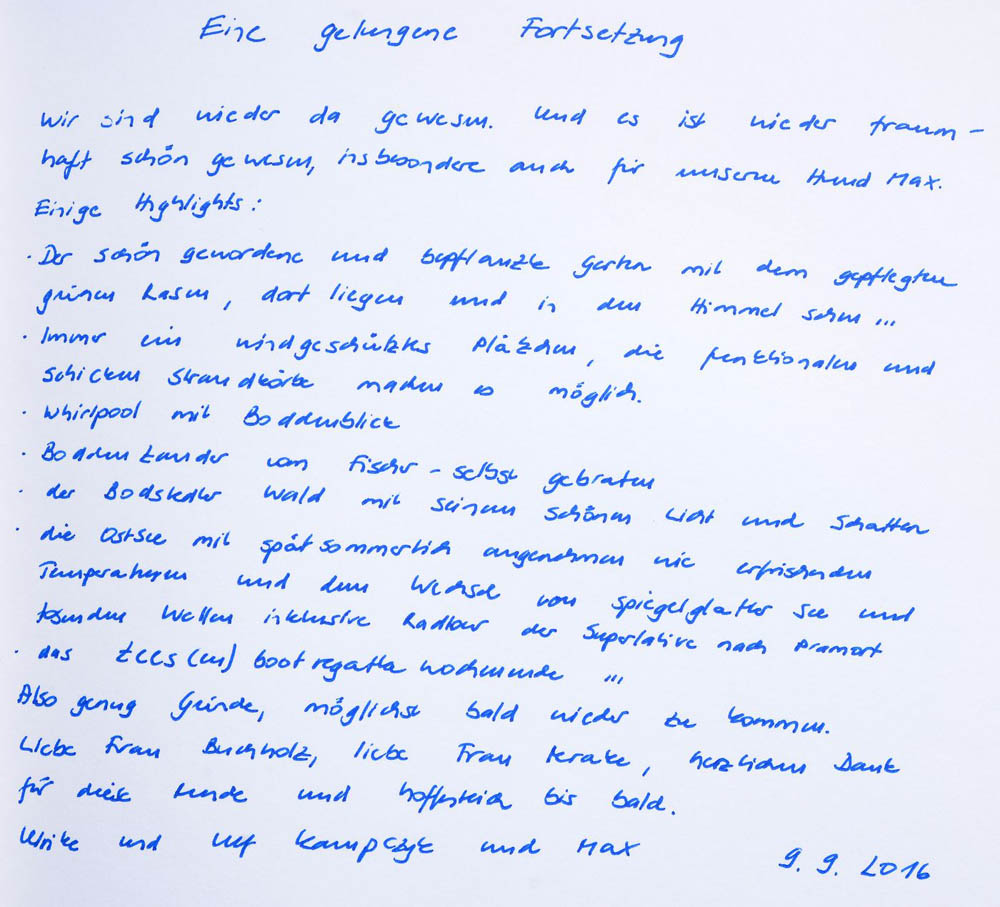 Eine gelungene Fortsetzung
Wir sind wieder da gewesen. Und es ist wieder traum-
haft schön gewesen, insbesondere auch für unseren Hund Max.
Einige Highlights:
· Der schön gewordene und bepflanzte Garten mit dem gepflegten
grünen Rasen, dort liegen und in den Himmel sehen ...
· Immer ein windgeschütztes Plätzchen, die funktionalen und
schicken Strandkörbe machen es möglich.
· Whirlpool mit Boddenblick
· Boddenzander vom Fischer - selbst gebraten
· der Bodstedter Wald mit seinem schönen Licht und Schatten
· die Ostsee mit spätsommerlich angenehmen wie erfrischenden
Temperaturen und dem Wechsel von spiegelglatter See und
tosenden Wellen inklusive Radtour der Superlative nach Pramort
· das Zees(en)bootregattawochenende ...
Also genug Gründe, möglichst bald wieder zu kommen.
Liebe Frau Buchholz, liebe Frau, herzlichen Dank
für diese und hoffentlich bis bald.
Ulrike und Ulf Kampczyk und Max
9. 9. 2016